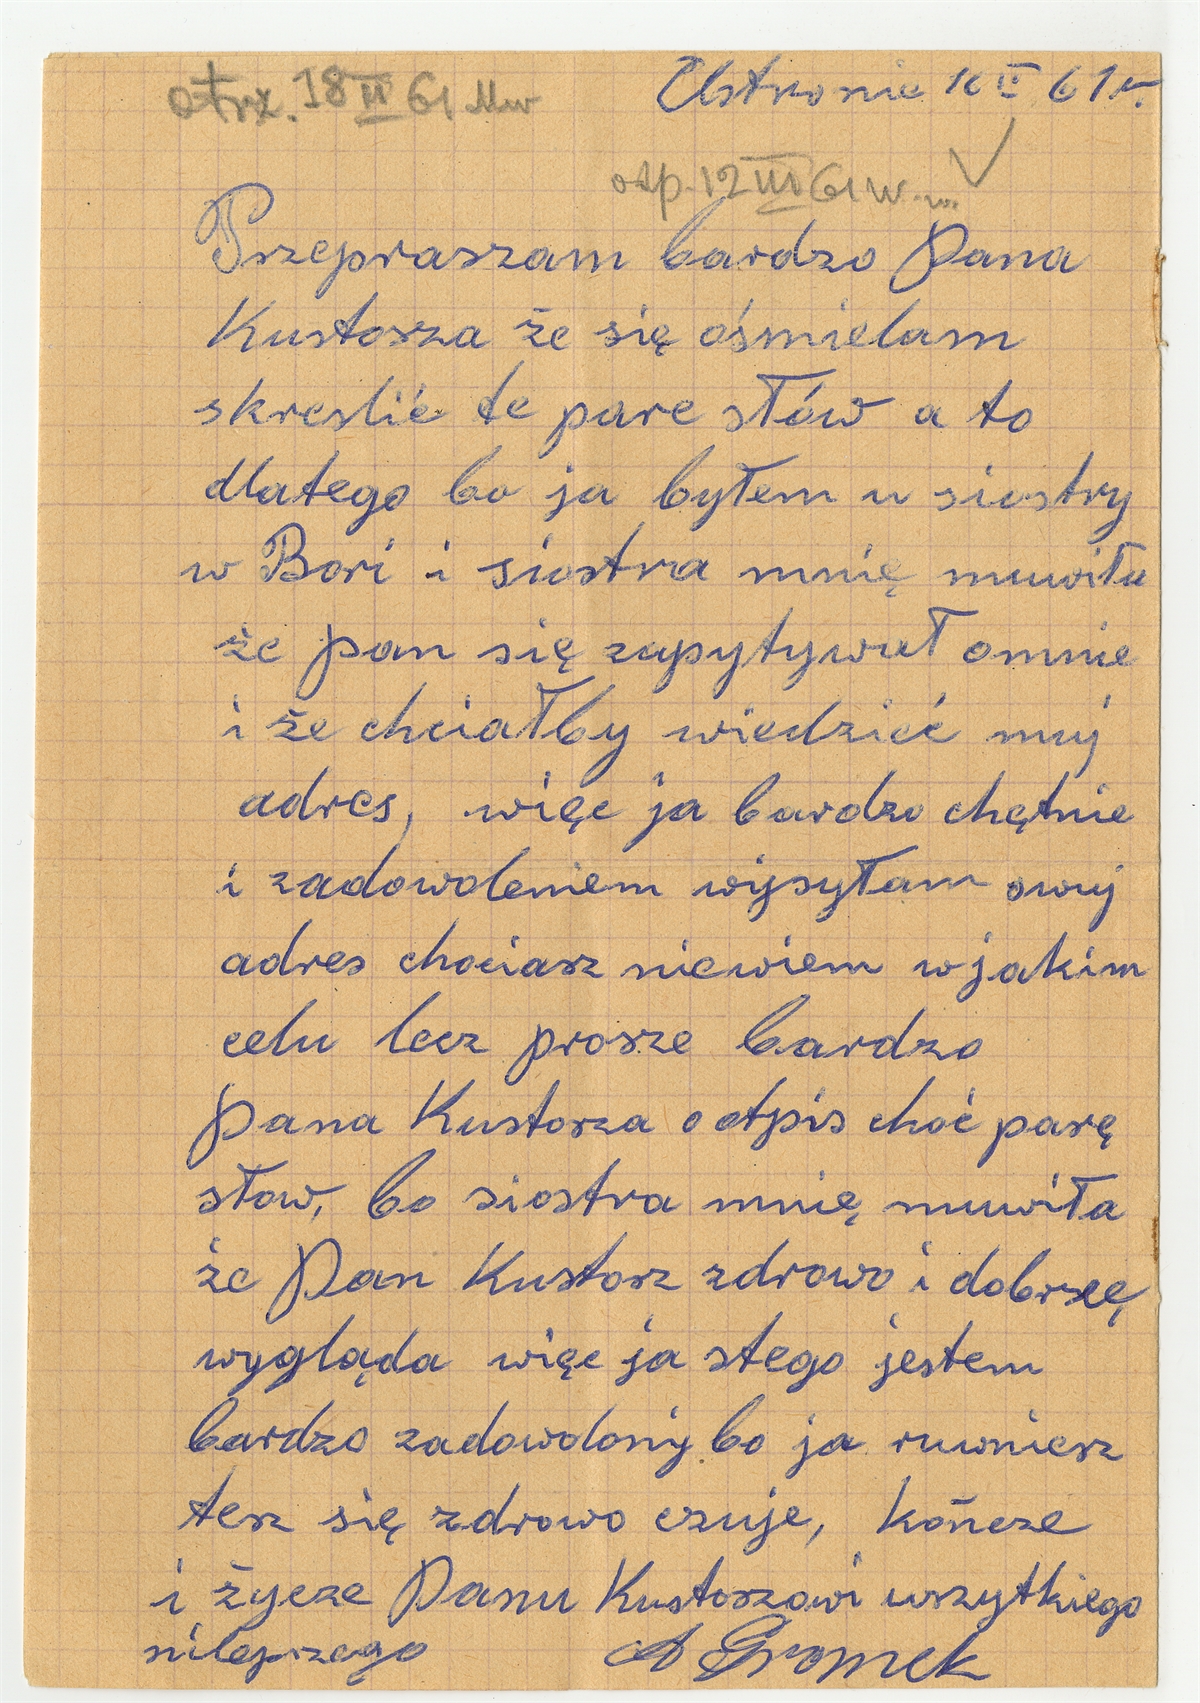 otrz. 18 II 61 Mw
Ustronie 16 II 61 r.
otp. 12 III 61 W. w.
Przepraszam bardzo Pana
Kustosza że się ośmielam
skreslić te pare słów a to
dlatego bo ja byłem u siostry
w Bori i siostra mnię muwiła
że pan się zapytywał omnie
i że chciałby wiedzić muj
adres, więc ja bardzo chętnie
i zadowoleniem wysyłam swuj
adres chociasz niewiem wjakim
celu lecz prosze bardzo
Pana Kustosza o otpis choć parę
słow, bo siostra mnię muwiła
że Pan Kustosz zdrowo i dobrzę
wygląda więc ja stego jestem
bardzo zadowolony bo ja ruwniesz
tesz się zdrowo czuje, kończe
i życze Panu Kustoszowi wszytkiego
nilepszego A Gromek